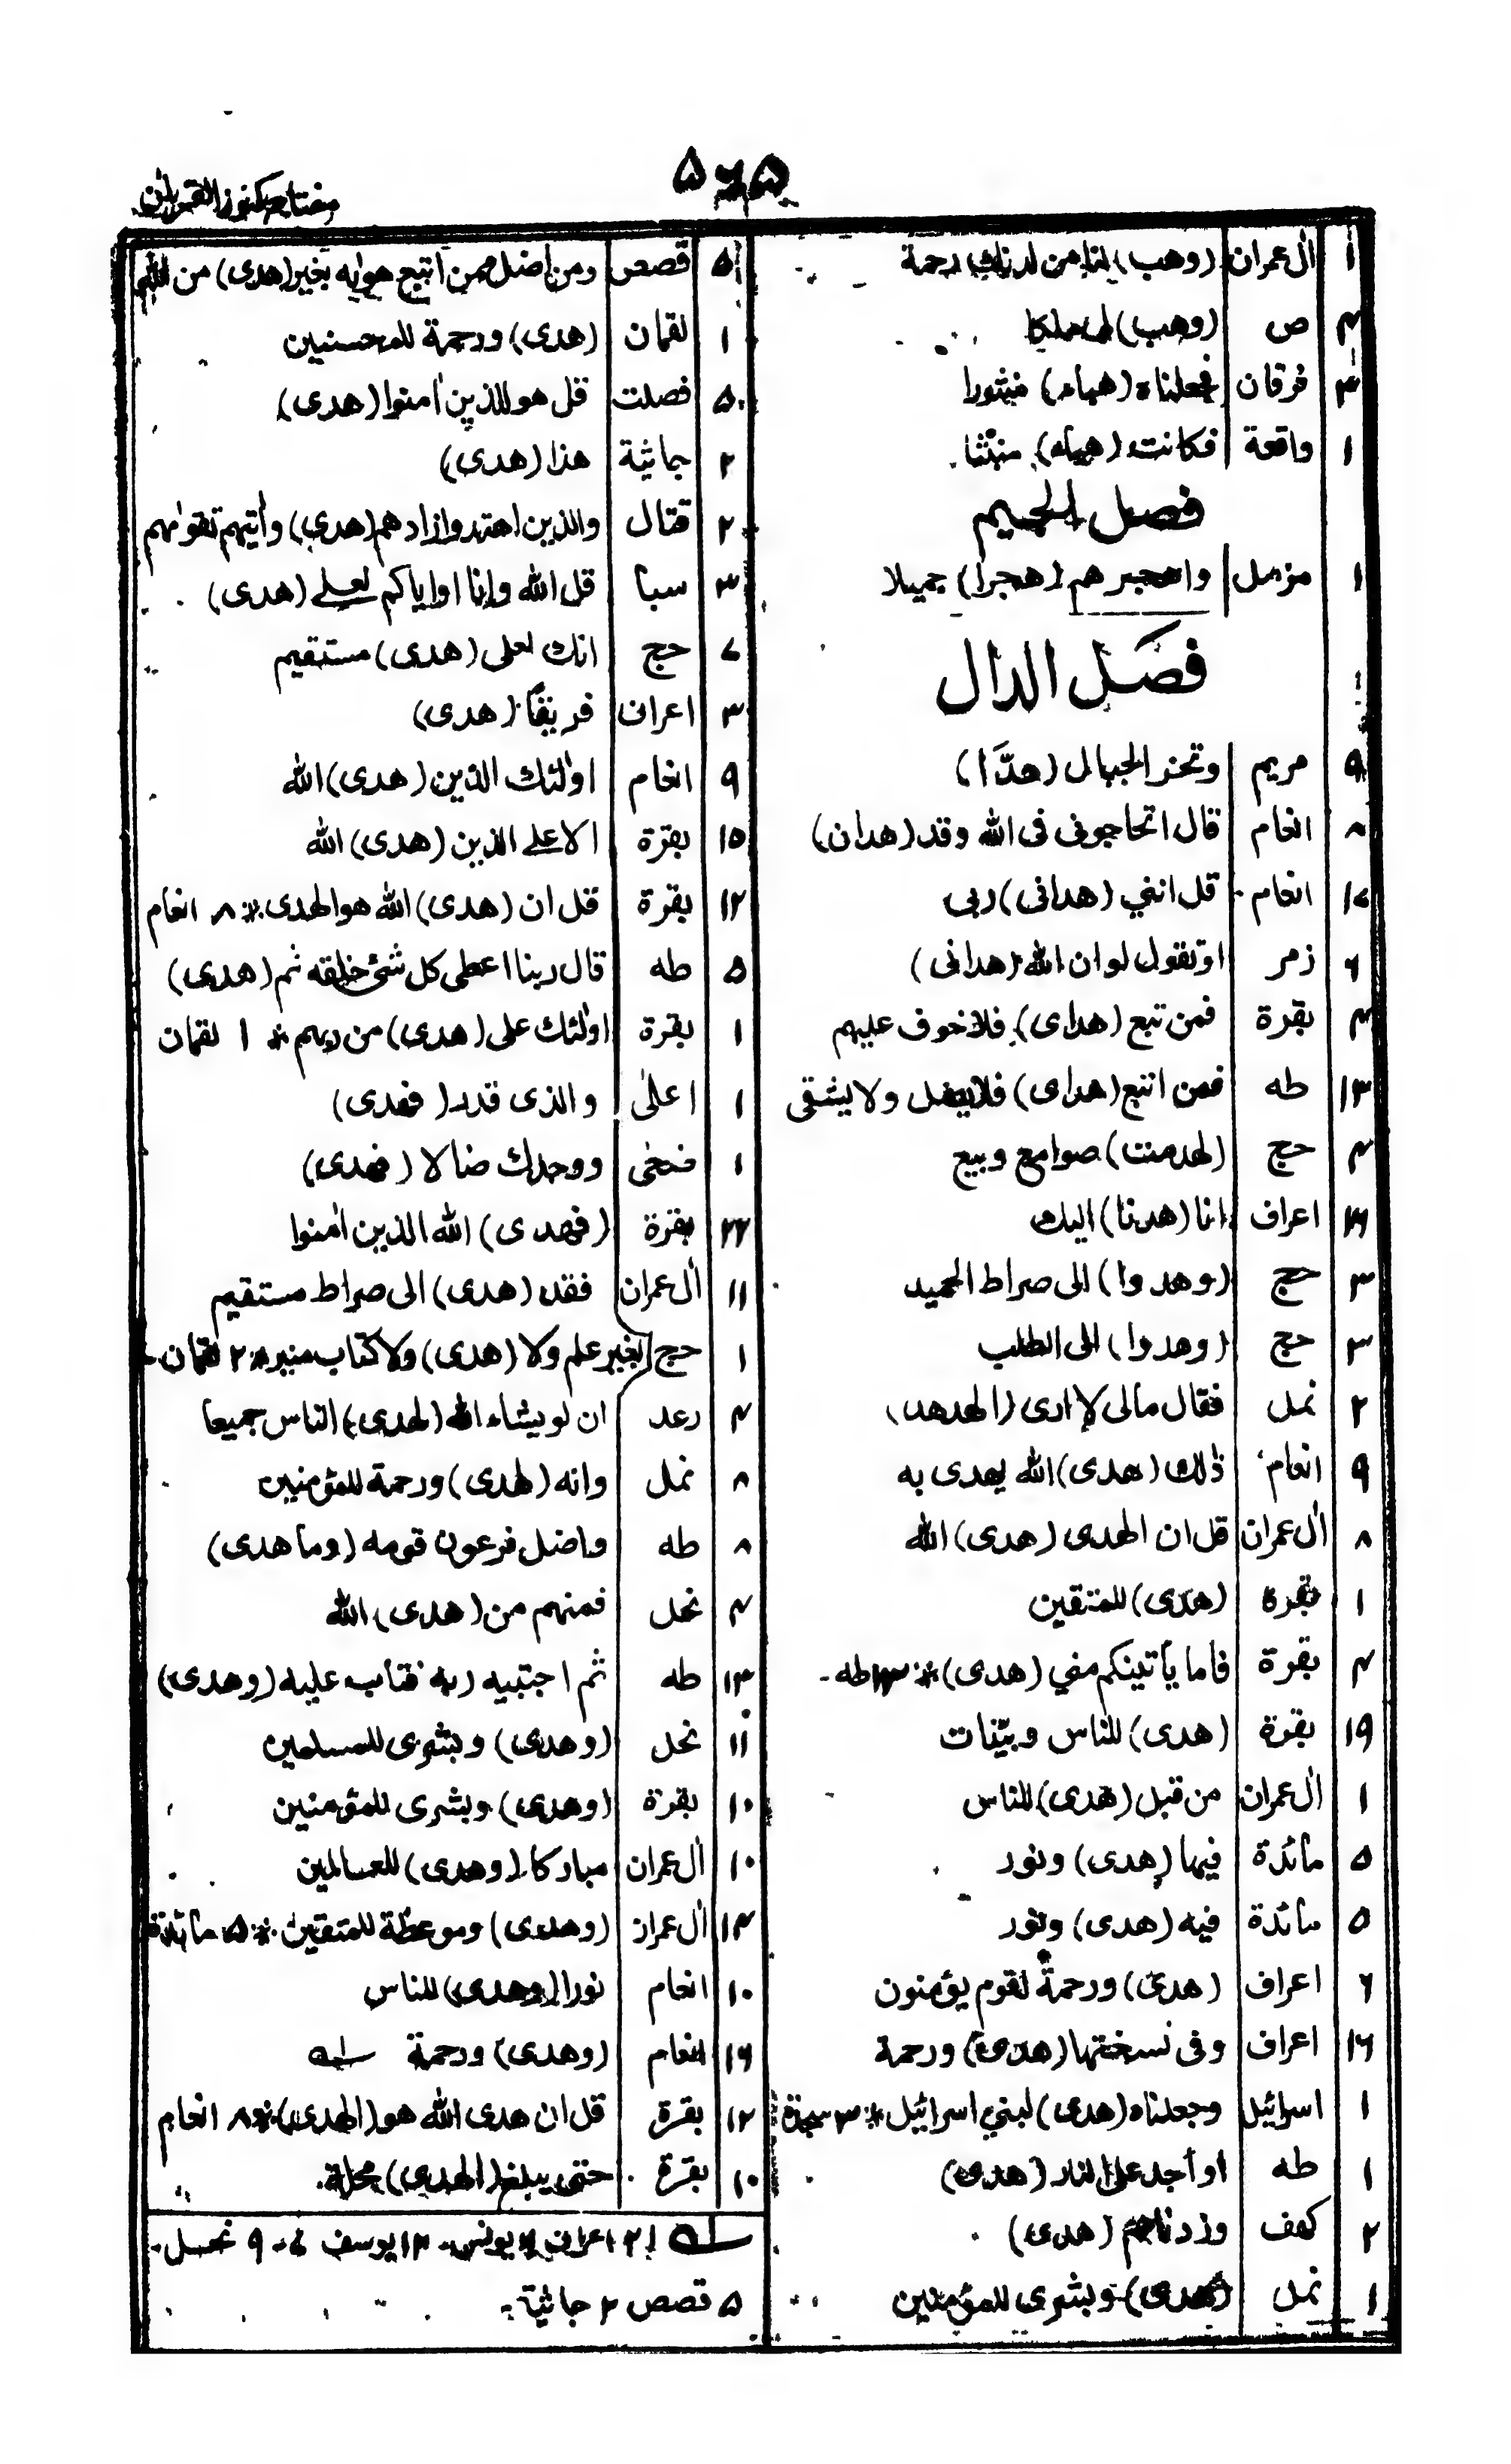 ۵۶۵
مفتاح كنوز القرآن
۱ اٰل عمران (وهب) لنا من لدنك رحمة
۴ ص (وهب) لى ملكا
۳ فرقان فجعلناه (هباء) منثورا
۱ واقعة فكانت (هباء) منبثا
فصل الجيم
۱ مزمل واهجرهم (هجرا) جميلا
فصل الدال
مريم وتخر الجبال (هدّا)
۸ انعام قال اتحاجونى فى الله وقد (هدان)
انعام قل اننى (هدانى) ربى
۶ زمر او تقول لو ان الله (هدانى)
۴ بقرة فمن تبع (هداى) فلا خوف عليهم
۱۳ طه فمن اتبع (هداى) فلا يضل ولا يشقى
۴ حج (لهدمت) صوامع وبيع
اعراف انا (هدنا) اليك
۳ حج (وهدوا) الى صراط الحميد
۳ حج (وهدوا) الى الطيب
۲ نمل فقال مالى لا ارى (الهدهد)
۹ انعام ذٰلك (هدى) الله يهدى به
۸ اٰل عمران قل ان الهدى (هدى) الله
۱ بقرة (هدى) للمتقين
۴ بقرة فاما يأتينكم منى (هدى) * طه
۱۹ بقرة (هدى) للناس وبيّنات
۱ اٰل عمران من قبل (هدى) للناس
۵ مائدة فيها (هدى) ونور
۵ مائدة فيه (هدى) ونور
۶ اعراف (هدى) ورحمة لقوم يؤمنون
۱۶ اعراف وفى نسختها (هدى) ورحمة
۱ اسرائيل وجعلناه (هدى) لبنى اسرائيل * ۳ سجدة
۱ طه او اجد على النار (هدى)
۲ كهف وزدناهم (هدى)
۱ نمل (هدى) وبشرى للمؤمنين
۵ قصص ومن اضل ممن اتبع هوٰيه بغير (هدى) من الله
۱ لقمان (هدى) ورحمة للمحسنين
۵ فصلت قل هو للذين اٰمنوا (هدى)
۲ جاثية هذا (هدى)
۲ قتال والذين اهتدوا زادهم (هدى) واٰتيهم تقوٰىهم
۳ سبأ قل الله وانا او اياكم لعلے (هدى)
۷ حج انك لعلى (هدى) مستقيم
۳ اعراف فريقًا (هدى)
۹ انعام اولٰئك الذين (هدى) الله
۱۵ بقرة الا علے الذين (هدى) الله
۱۲ بقرة قل ان (هدى) الله هو الهدى * ۸ انعام
۵ طه قال ربنا اعطى كل شئ خلقه ثم (هدى)
۱ بقرة اولٰئك على (هدى) من ربهم * ۱ لقمان
۱ اعلىٰ والذى قدر (فهدى)
۱ ضحٰى ووجدك ضالا (فهدى)
بقرة (فهدى) الله الذين اٰمنوا
۱۱ اٰل عمران فقد (هدى) الى صراط مستقيم
۱ حج بغير علم ولا (هدى) ولا كتاب منير * ۲ لقمان
۴ رعد ان لو يشاء الله (لهدى) الناس جميعا
۸ نمل وانه (لهدى) ورحمة للمؤمنين
۸ طه واضل فرعون قومه (وما هدى)
۴ نحل فمنهم من (هدى) الله
طه ثم اجتبيه ربه فتاب عليه (وهدى)
۱۱ نحل (وهدى) وبشرى للمسلمين
۱۰ بقرة (وهدى) وبشرى للمؤمنين
۱۰ اٰل عمران مباركا (وهدى) للعالمين
۱۴ اٰل عمران (وهدى) وموعظة للمتقين * ۵ مائدة
۱۰ انعام نورا (وهدى) للناس
۱۶ انعام (وهدى) ورحمة
۱۲ بقرة قل ان هدى الله هو (الهدى) * ۸ انعام
۱۰ بقرة حتى يبلغ (الهدى) محله
اعراف يونس ۱۲ يوسف ۹ نحل
۵ قصص ۲ جاثية